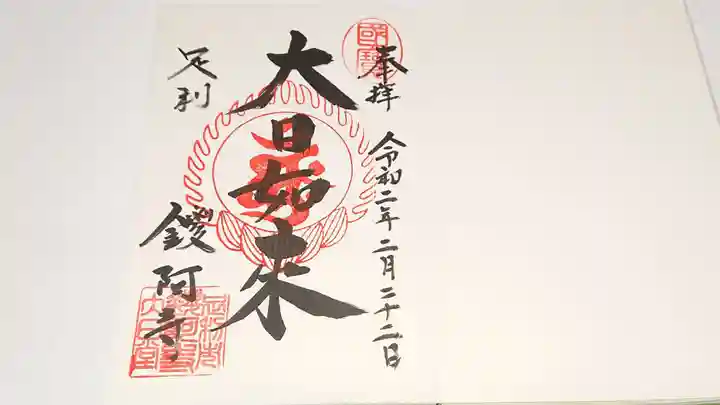 國寶
奉拝
令和二年二月二十二日
大日如来
足利
鑁阿寺